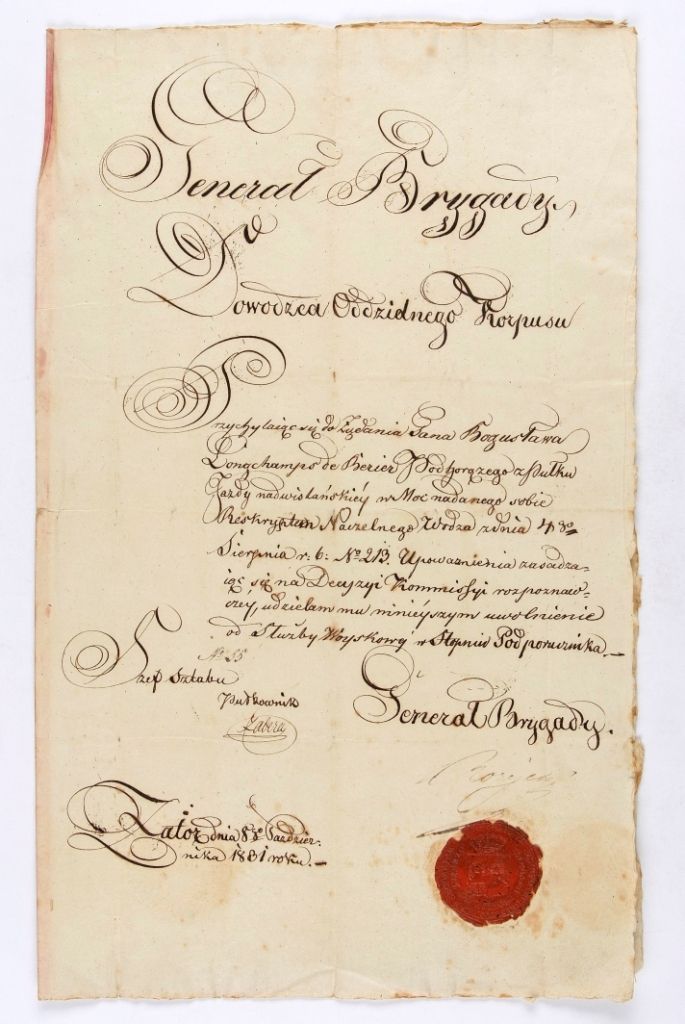 Generał Brygady
Dowodzca Oddzielnego Korpusu
Przychylaiąc się do Żądania Pana Bogusława
Longchamps de Berier Podchorążego z Pułku
Jazdy nadwiślańskiéy w Moc nadanego sobie
Reskryptem Naczelnego Wodza z dnia 4go
Sierpnia r: b: No 213. Upoważnienia zasadza-
iąc się na Decyzyi Kommissyi rozpoznaw-
czéy, udzielam mu ninieyszym uwolnienie
od Służby Woyskowéy w Stopniu Podporucznika.—
No 55
Szef Sztabu
Pułkownik
Zabera
Generał Brygady.
Zator dnia 8go Paździer-
nika 1831 roku.—